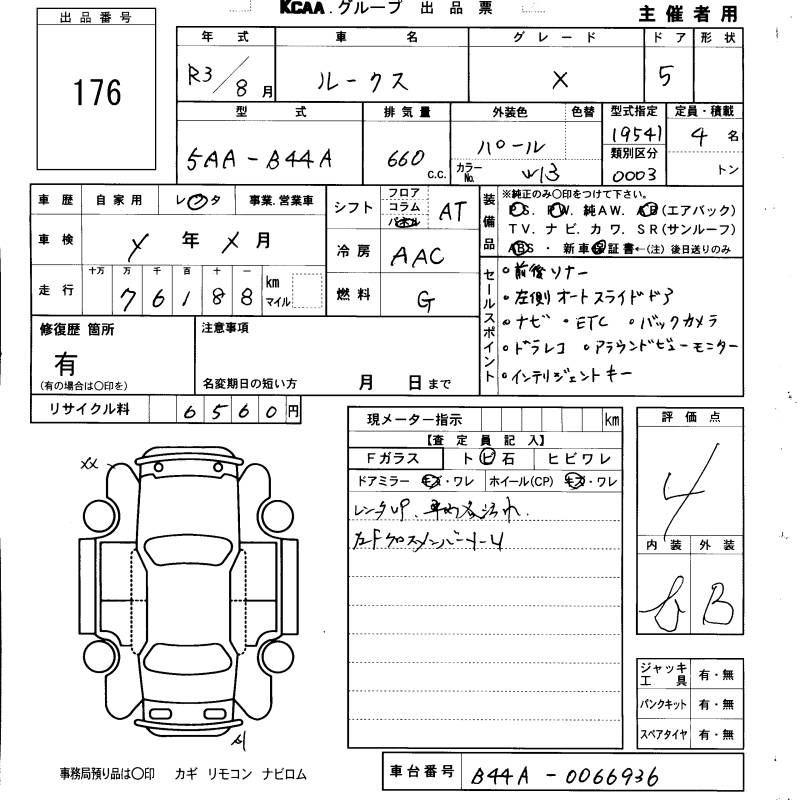 KCAA.グループ 出品票
主催者用
出品番号
176
年式 車名 グレード ドア 形状
R3/8月 ルークス X 5
型式 排気量 外装色 色替 型式指定 定員・積載
5AA-B44A 660 C.C. パール カラーNo. W13 19541 4名
類別区分
0003 トン
車歴 自家用 レンタ 事業.営業車
シフト フロア コラム パネル AT
車検 X年X月
冷房 AAC
走行 十万 万 千 百 十 一 km マイル
7 6 1 8 8
燃料 G
装備品 ※純正のみ〇印をつけて下さい。
PS. PW. 純AW. AB(エアバック)
TV. ナビ. カワ. SR(サンルーフ)
ABS・新車保証書←(注) 後日送りのみ
セールスポイント
・前後ソナー
・左側オートスライドドア
・ナビ ・ETC ・バックカメラ
・ドラレコ ・アラウンドビューモニター
・インテリジェントキー
修復歴 箇所
有
(有の場合は〇印を)
注意事項
名変期日の短い方 月 日まで
リサイクル料 6560円
現メーター指示 km
【査定員記入】
Fガラス トビ石 ヒビワレ
ドアミラー キズ・ワレ ホイール(CP) キズ・ワレ
レンタUP.
評価点
4
内装 外装
B
XX
A1
ジャッキ工具 有・無
パンクキット 有・無
スペアタイヤ 有・無
事務局預り品は〇印 カギ リモコン ナビロム
車台番号 B44A-0066936